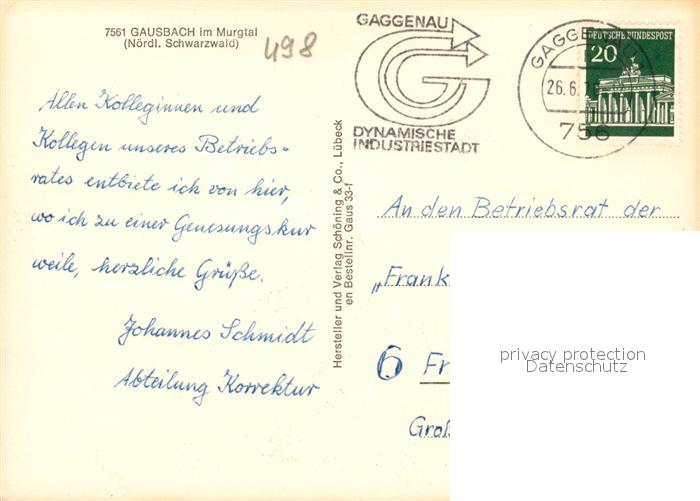 7561 GAUSBACH im Murgtal
(Nördl. Schwarzwald)
498
Allen Kolleginnen und
Kollegen unseres Betriebs-
rates entbiete ich von hier,
wo ich zu einer Genesungskur
weile, herzliche Grüße.
Johannes Schmidt
Abteilung Korrektur
Hersteller und Verlag Schöning & Co., Lübeck
en Bestellnr. Gaus 33-f
GAGGENAU
DYNAMISCHE
INDUSTRIESTADT
GAGGENAU
26.6.
756
DEUTSCHE BUNDESPOST
20
An den Betriebsrat der
„Frank
6 Fr
Groß
privacy protection
Datenschutz